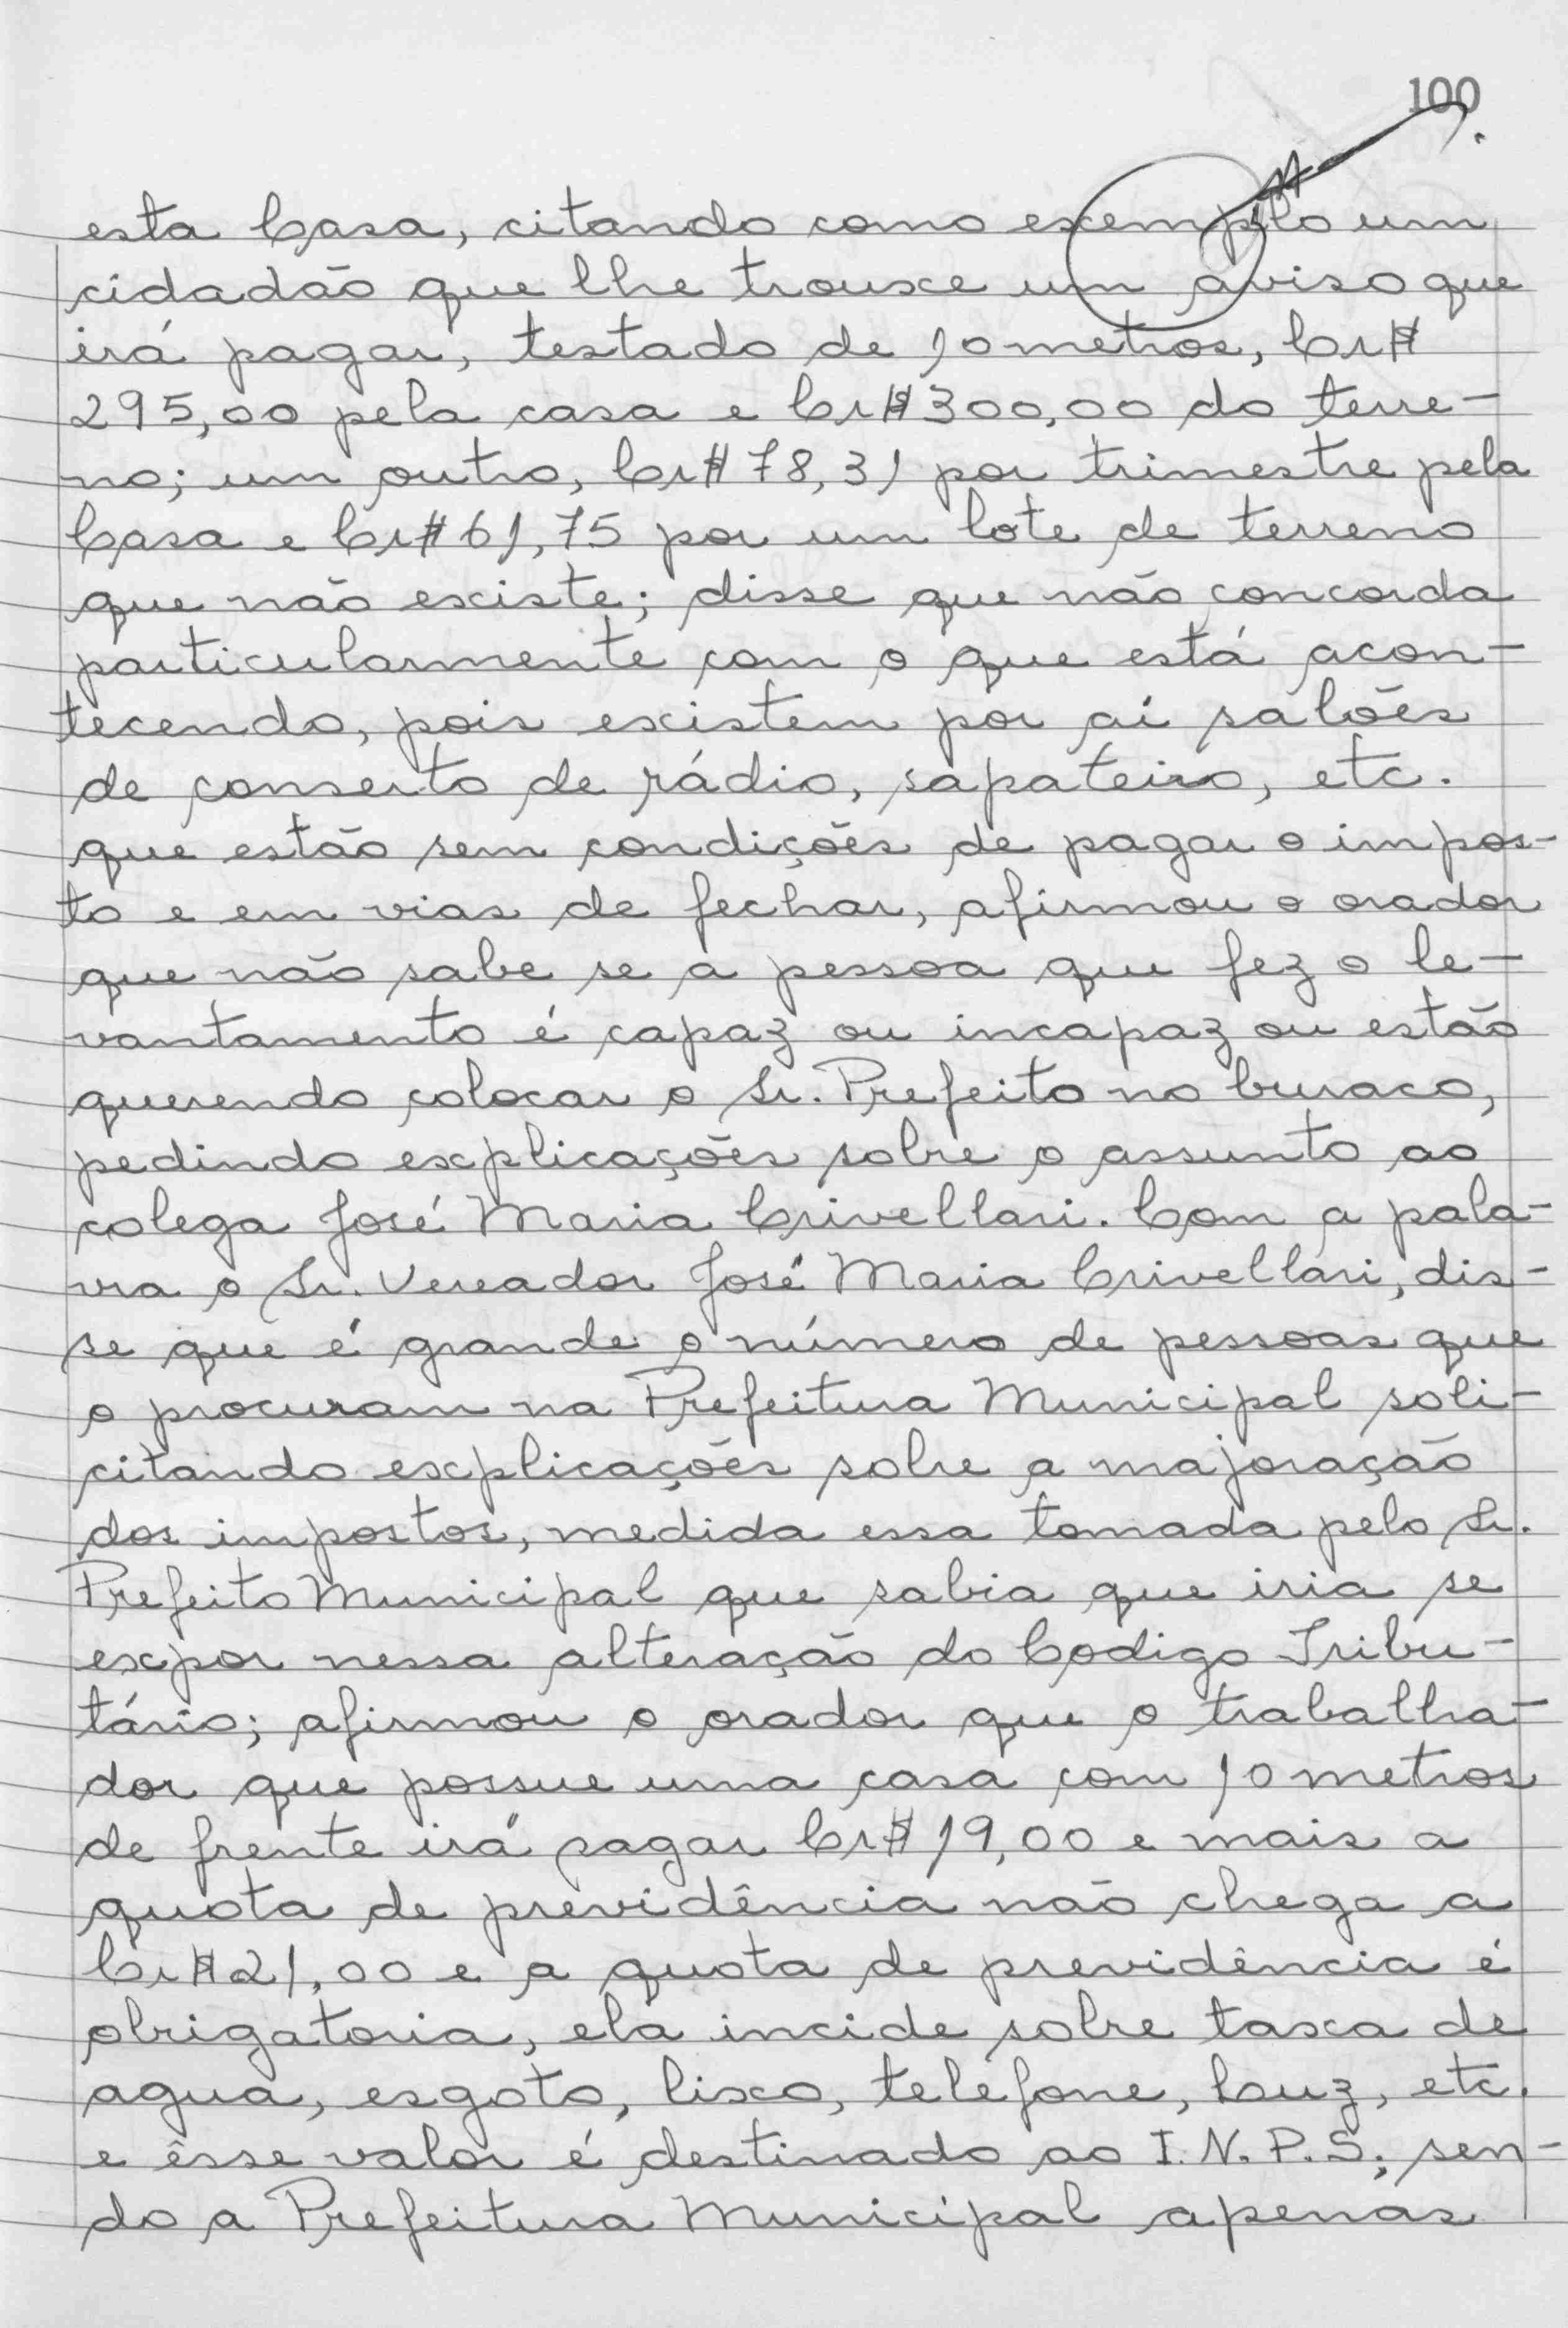 100
esta Casa, citando como exemplo um
cidadão que lhe trouxe um aviso que
irá pagar, testado de 10 metros, Cr$
295,00 pela casa e Cr$ 300,00 do terre-
no; um outro, Cr$ 78,31 por trimestre pela
Casa e Cr$ 61,75 por um lote de terreno
que não existe; disse que não concorda
particularmente com o que está acon-
tecendo, pois existem por aí salões
de conserto de rádio, sapateiro, etc.
que estão sem condições de pagar o impos-
to e em vias de fechar, afirmou o orador
que não sabe se a pessoa que fez o le-
vantamento é capaz ou incapaz ou estão
querendo colocar o Sr. Prefeito no buraco,
pedindo explicações sobre o assunto ao
colega José Maria Crivellari. Com a pala-
vra o Sr. Vereador José Maria Crivellari, dis-
se que é grande o número de pessoas que
o procuram na Prefeitura Municipal soli-
citando explicações sobre a majoração
dos impostos, medida essa tomada pelo Sr.
Prefeito Municipal que sabia que iria se
expor nessa alteração do Codigo Tribu-
tário; afirmou o orador que o trabalha-
dor que possue uma casa com 10 metros
de frente irá pagar Cr$ 19,00 e mais a
quota de previdência não chega a
Cr$ 21,00 e a quota de previdência é
obrigatoria, ela incide sobre taxa de
agua, esgoto, lixo, telefone, luz, etc.
e êsse valor é destinado ao I.N.P.S; sen-
do a Prefeitura Municipal apenas